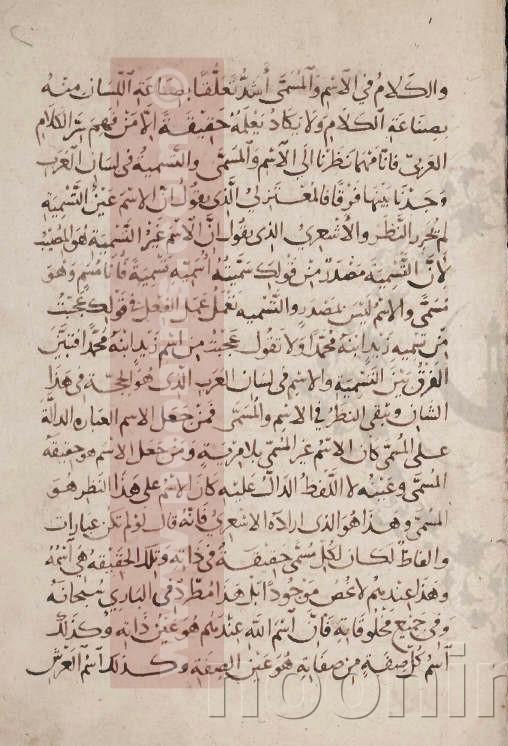 والكلام في الاسم والمسمى أشد تعلقا بصناعة اللسان منه
بصناعة الكلام ولا يكاد يعلمه حقيقة إلا من فهم سر الكلام
العربي فانا مهما نظرنا الى الاسم والمسمى والتسمية في لسان العرب
وجدنا بينها فرقا فالمعتزلي الذي يقول ان الاسم عين التسمية
لم يحرر النظر والأشعري الذي يقول ان الاسم غير التسمية هو المصيب
لأن التسمية مصدر من قولك سميته أسميه تسمية فأنا مسم وهو
مسمى والاسم ليس بمصدر والتسميه تعمل عمل الفعل في قولك عجبت
من تسميه زيد ابنه محمدا ولا تقول عجبت من اسم زيد ابنه محمدا فتبين
الفرق بين التسمية والاسم في لسان العرب الذي هو الحجة في هذا
الشان ويبقى النظر في الاسم والمسمى فمن جعل الاسم العبارة الدالة
على المسمى كان الاسم غير المسمى بلا مرية ومن جعل الاسم هو حقيقة
المسمى وعينه لا اللفظ الدال عليه كان الاسم على هذا النظر هو
المسمى وهذا هو الذي اراده الاشعري فانه قال لو لم تكن عبارات
والفاظ لكان لكل مسمى حقيقة في ذاته وتلك الحقيقه هي اسمه
وهذا عندهم لا يخص موجودا بل هذا مطرد في الباري سبحانه
وفي جميع مخلوقاته فان اسم الله عندهم هو عين ذاته وكذلك
اسم كل صفة من صفاته هو عين الصفة وكذلك اسم العرش
noonin